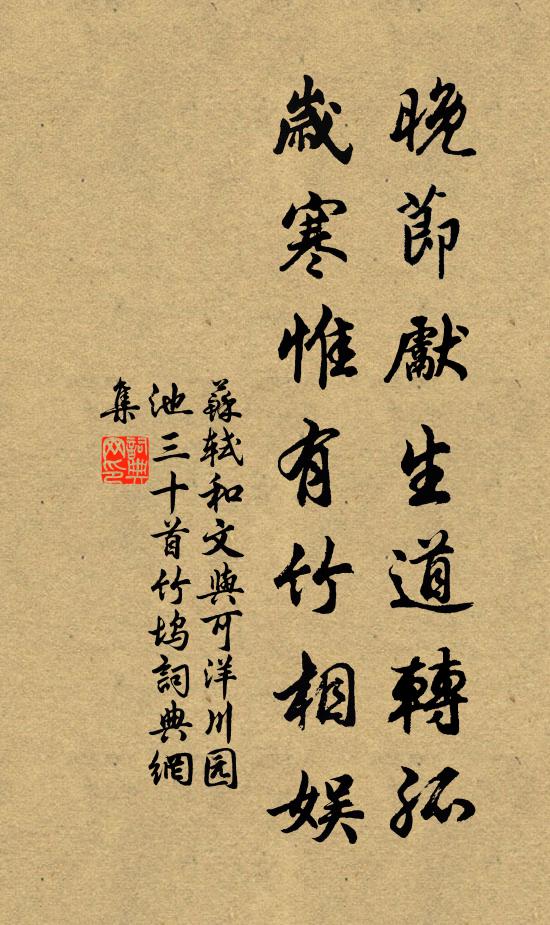 晚節獻生道轉孤
歲寒惟有竹相娱
蘇軾和文與可洋川园
池三十首竹塢詞典網
集
詞典
网印